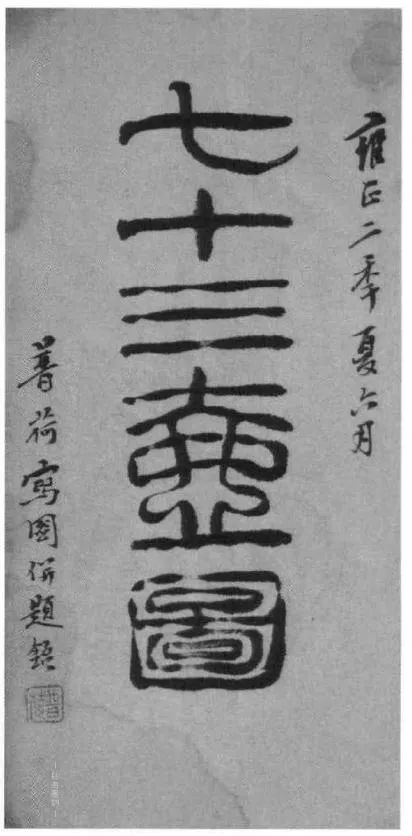 雍正二秊夏六月
七十三壺圖
普荷寫圖併題